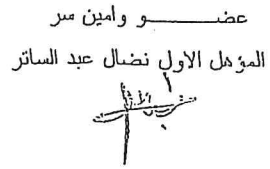 عضــــــو وامين سر
المؤهل الاول نضال عبد الساتر